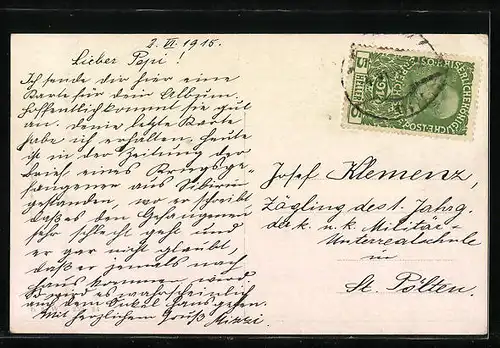 2. VI. 1915.
Lieber Pepi!
Ich sende dir hier eine
Karte für dein Album.
Hoffentlich kommt sie gut
an. Deine letzte Karte
habe ich erhalten. Heute
ist in der Zeitung der
Brief eines Kriegsge-
fangenen aus Sibirien
gestanden, wo er schreibt
daß es den Gefangenen
sehr schlecht geht und
er gar nicht glaubt,
daß er jemals nach
Haus kommen wird.
So wird es wahrscheinlich
auch dem Onkel Hans gehen.
Mit herzlichem Gruß Mizzi.
5 HELLER 5
Josef Klemenz,
Zögling des 1. Jahrg.
der k. u. k. Militär-
Unterrealschule
in
St. Pölten.